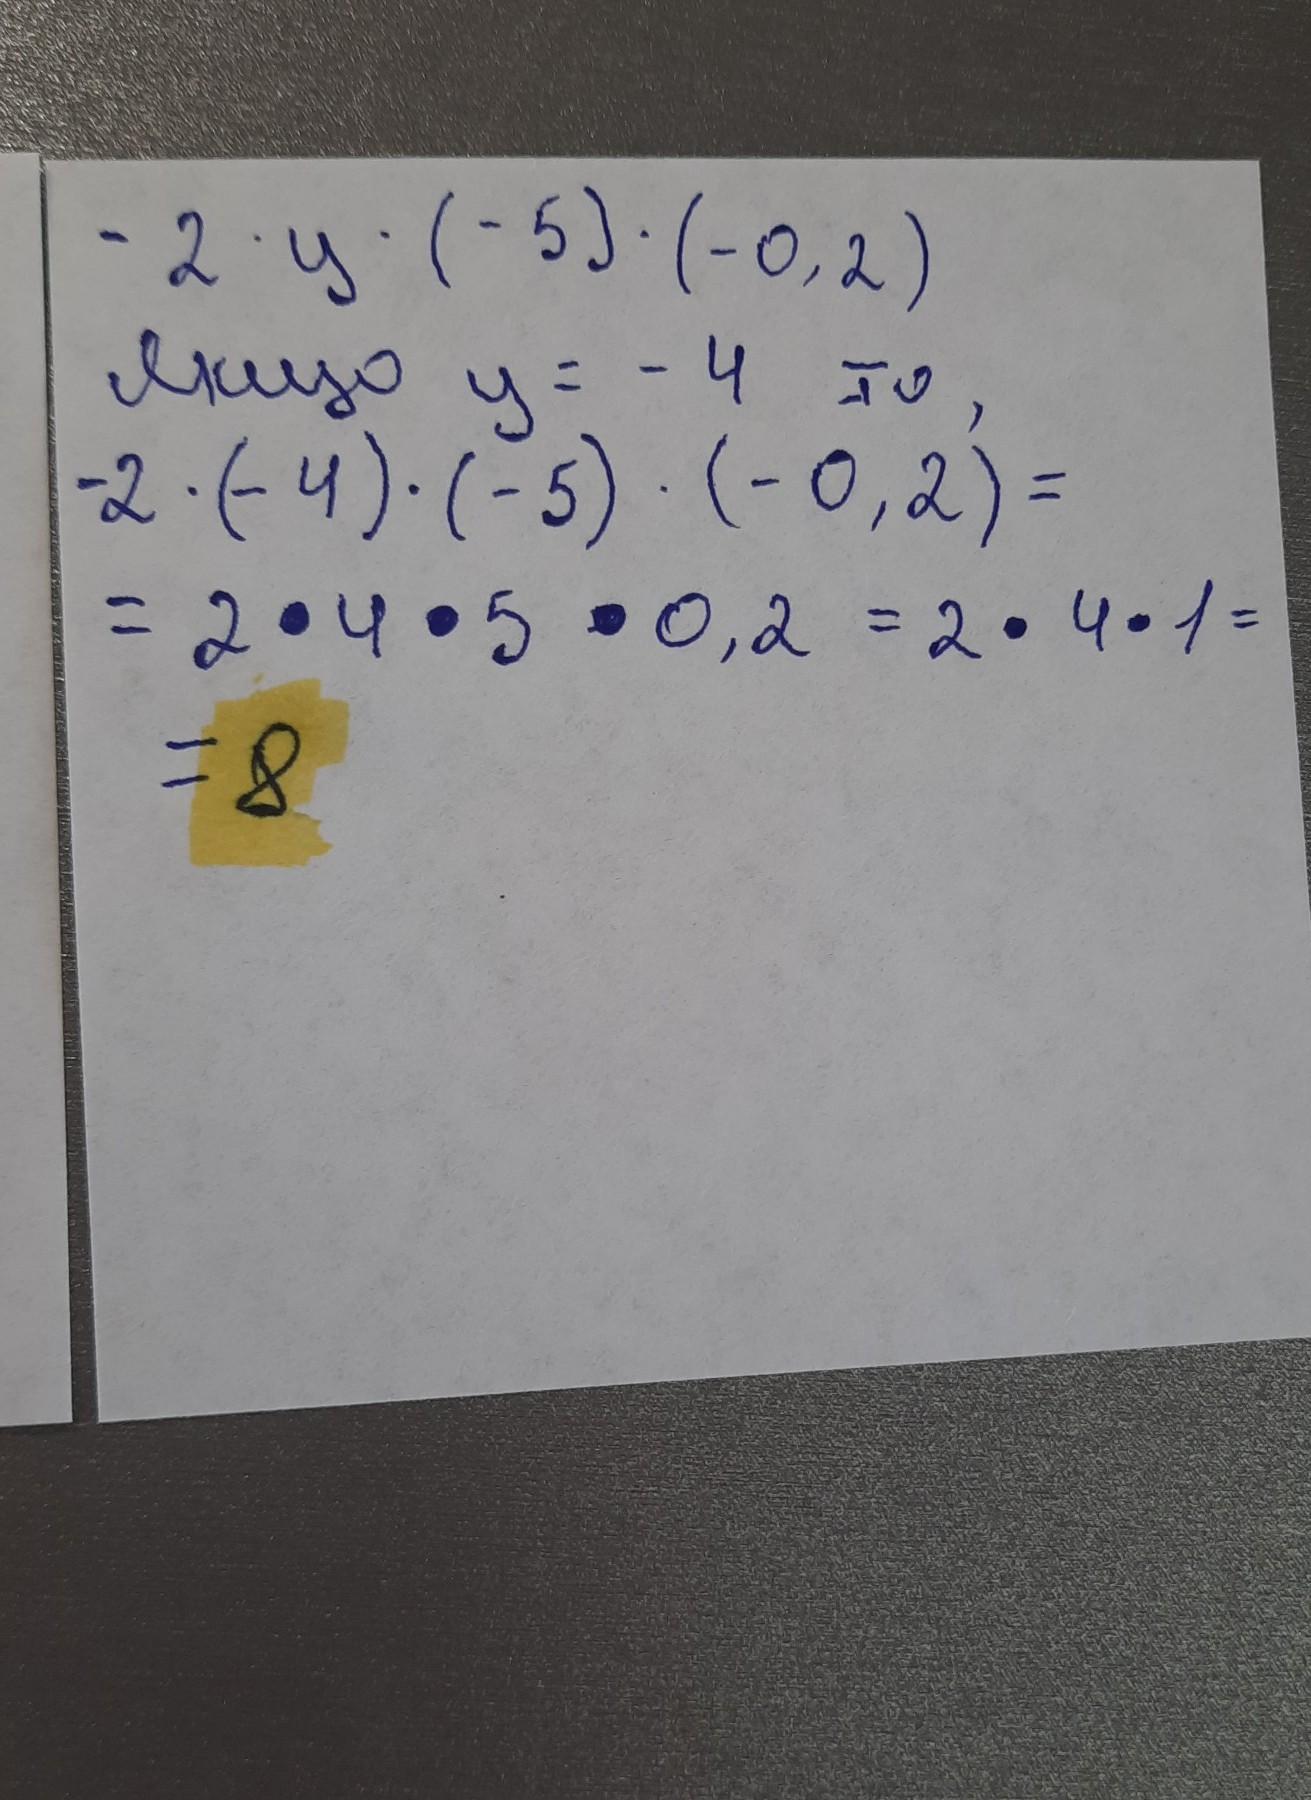 - 2 · y · (-5) · (-0,2)
Якщо y = - 4 то,
-2 · (-4) · (-5) · (-0,2) =
= 2 • 4 • 5 • 0,2 = 2 • 4 • 1 =
= 8